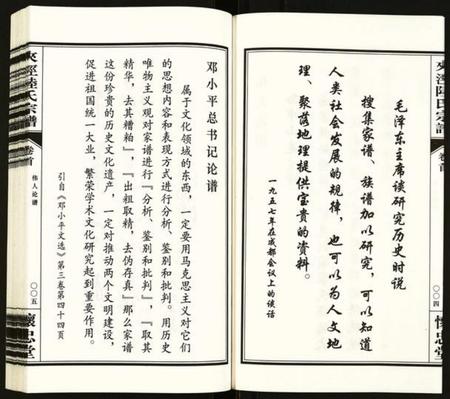 毛泽东主席谈研究历史时说
搜集家谱、族谱加以研究，可以知道
人类社会发展的规律，也可以为人文地
理、聚落地理提供宝贵的资料。
一九五七年在成都会议上的谈话
夾涇陸氏宗譜
卷首
〇〇四
懷忠堂
邓小平总书记论谱
属于文化领域的东西，一定要用马克思主义对它们
的思想内容和表现方式进行分析、鉴别和批判。用历史
唯物主义观对家谱进行『分析、鉴别和批判』，『取其
精华，去其糟粕』，『出粗取精，去伪存真』那么家谱
这份珍贵的历史文化遗产，一定对推动两个文明建设，
促进祖国统一大业，繁荣学术文化研究起到重要作用。
引自《邓小平文选》第三卷第四十四页
夾涇陸氏宗譜
卷首
伟人论谱
〇〇五
懷忠堂